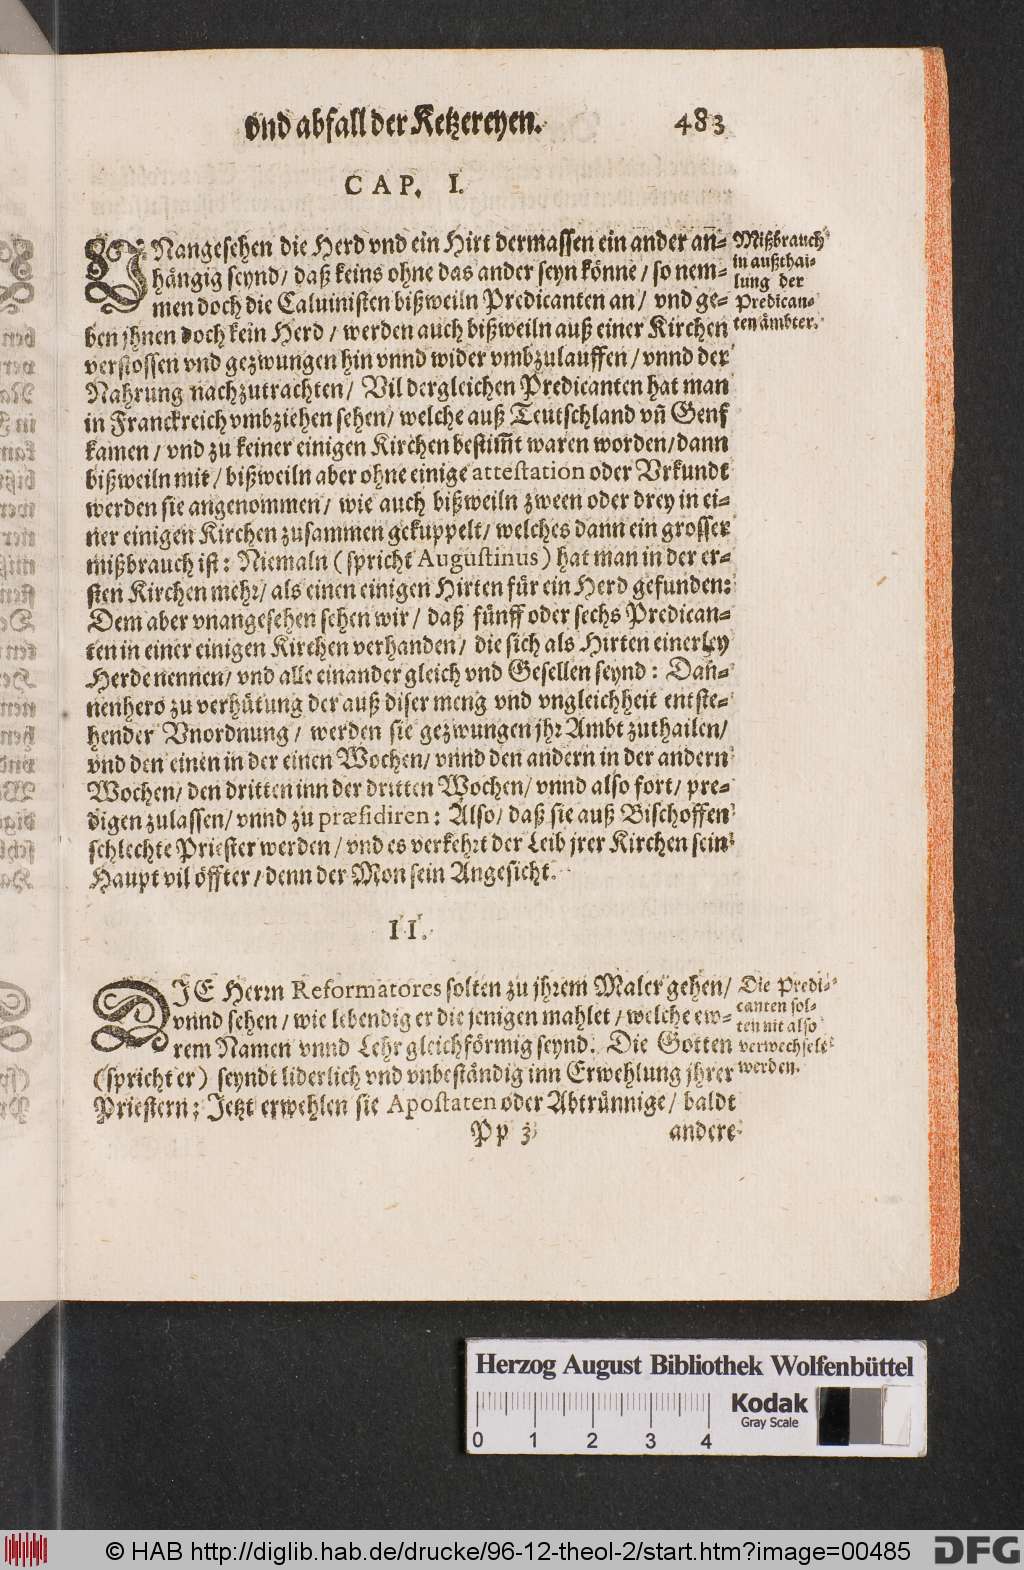 vnd abfall der Ketzereyen. 483
CAP. I.
VNangesehen die Herd vnd ein Hirt dermassen ein ander an-
hängig seynd/ daß keins ohne das ander seyn könne/ so nem-
men doch die Caluinisten bißweiln Predicanten an/ vnd ge-
ben jhnen doch kein Herd/ werden auch bißweiln auß einer Kirchen
verstossen vnd gezwungen hin vnnd wider vmbzulauffen/ vnnd der
Nahrung nachzutrachten/ Vil dergleichen Predicanten hat man
in Franckreich vmbziehen sehen/ welche auß Teutschland vñ Genf
kamen/ vnd zu keiner einigen Kirchen bestim̃t waren worden/ dann
bißweiln mit/ bißweiln aber ohne einige attestation oder Vrkundt
werden sie angenommen/ wie auch bißweiln zween oder drey in ei-
ner einigen Kirchen zusammen gekuppelt/ welches dann ein grosser
mißbrauch ist: Niemaln (spricht Augustinus) hat man in der er-
sten Kirchen mehr/ als einen einigen Hirten für ein Herd gefunden:
Dem aber vnangesehen sehen wir/ daß fünff oder sechs Predican-
ten in einer einigen Kirchen verhanden/ die sich als Hirten einerley
Herde nennen/ vnd alle einander gleich vnd Gesellen seynd: Dan-
nenhero zu verhütung der auß diser meng vnd vngleichheit entste-
hender Vnordnung/ werden sie gezwungen jhr Ambt zuthailen/
vnd den einen in der einen Wochen/ vnnd den andern in der andern
Wochen/ den dritten inn der dritten Wochen/ vnnd also fort/ pre-
digen zulassen/ vnnd zu præsidiren: Also/ daß sie auß Bischoffen
schlechte Priester werden/ vnd es verkehrt der Leib jrer Kirchen sein
Haupt vil öffter/ denn der Mon sein Angesicht.
Mißbrauch
in außthai-
lung der
Predican-
ten ämbter.
II.
DIE Herrn Reformatores solten zu jhrem Maler gehen/
vnnd sehen/ wie lebendig er die jenigen mahlet/ welche ew-
rem Namen vnnd Lehr gleichförmig seynd. Die Gotten
(spricht er) seyndt liderlich vnd vnbeständig inn Erwehlung jhrer
Priestern: Jetzt erwehlen sie Apostaten oder Abtrünnige/ baldt
Die Predi-
canten sol-
ten nit also
verwechselt
werden.
Pp 3 andere
Herzog August Bibliothek Wolfenbüttel
Kodak
Gray Scale
0 1 2 3 4
© HAB http://diglib.hab.de/drucke/96-12-theol-2/start.htm?image=00485
DFG